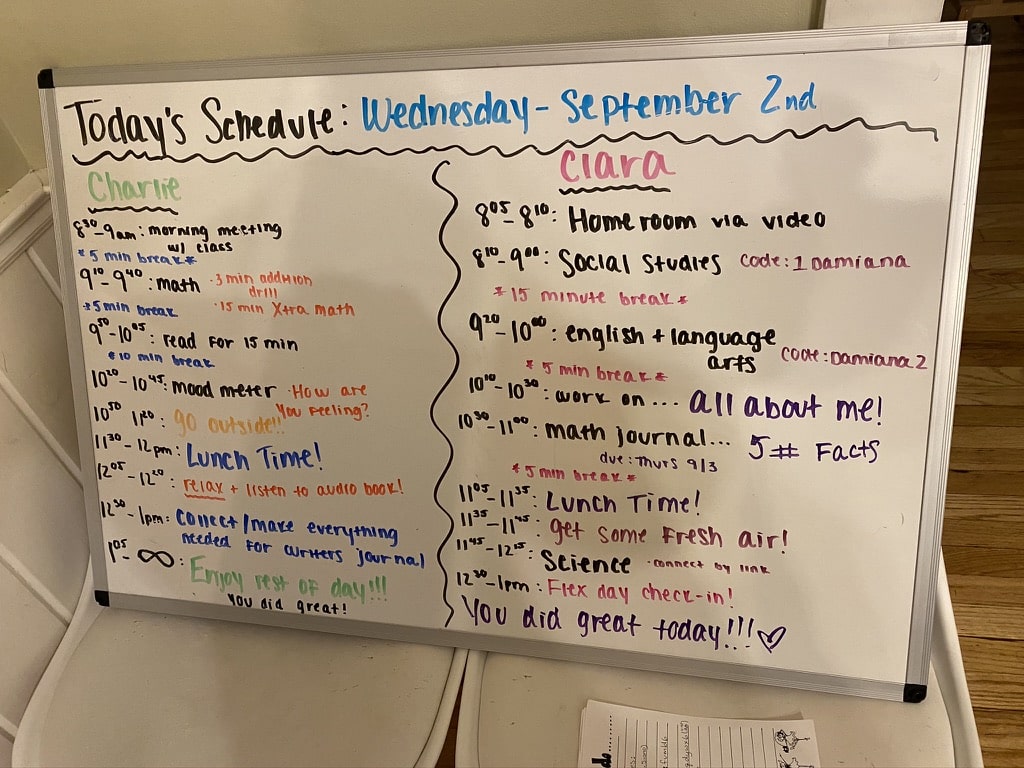 Today's Schedule: Wednesday - September 2nd
Charlie
8³⁰-9am: morning meeting
w/ class
*5 min break*
9¹⁰-9⁴⁰: math ·3 min addition
drill
·15 min Xtra math
*5 min break
9⁵⁰-10⁰⁵: read for 15 min
*10 min break
10²⁰-10⁴⁵: mood meter ·How are
you feeling?
10⁵⁰ 1¹²⁰: go outside!!
11³⁰-12pm: Lunch Time!
12⁰⁵-12²⁰: relax + listen to audio book!
12³⁰-1pm: collect/make everything
needed for writers journal
1⁰⁵-∞: Enjoy rest of day!!!
You did great!
Clara
8⁰⁵-8¹⁰: Homeroom via video
8¹⁰-9⁰⁰: Social Studies code: 1Damiana
*15 minute break*
9²⁰-10⁰⁰: english + language
arts code: Damiana2
*5 min break*
10¹⁰-10³⁰: work on... all about me!
10³⁰-11⁰⁰: math journal... 5 # Facts
due: Thurs 9/3
*5 min break*
11⁰⁵-11³⁵: Lunch Time!
11³⁵-11⁴⁵: get some fresh air!
11⁴⁵-12¹⁵: Science ·connect by link
12³⁰-1pm: Flex day check-in!
You did great today!!! ♡